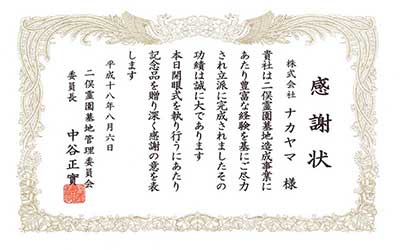 感謝状
株式会社 ナカヤマ 様
貴社は二俣霊園墓地造成事業に
あたり豊富な経験を基にご尽力
され立派に完成されましたその
功績は誠に大であります
本日開眼式を執り行うにあたり
記念品を贈り深く感謝の意を表
します
平成十八年八月六日
二俣霊園墓地管理委員会
委員長 中谷正實